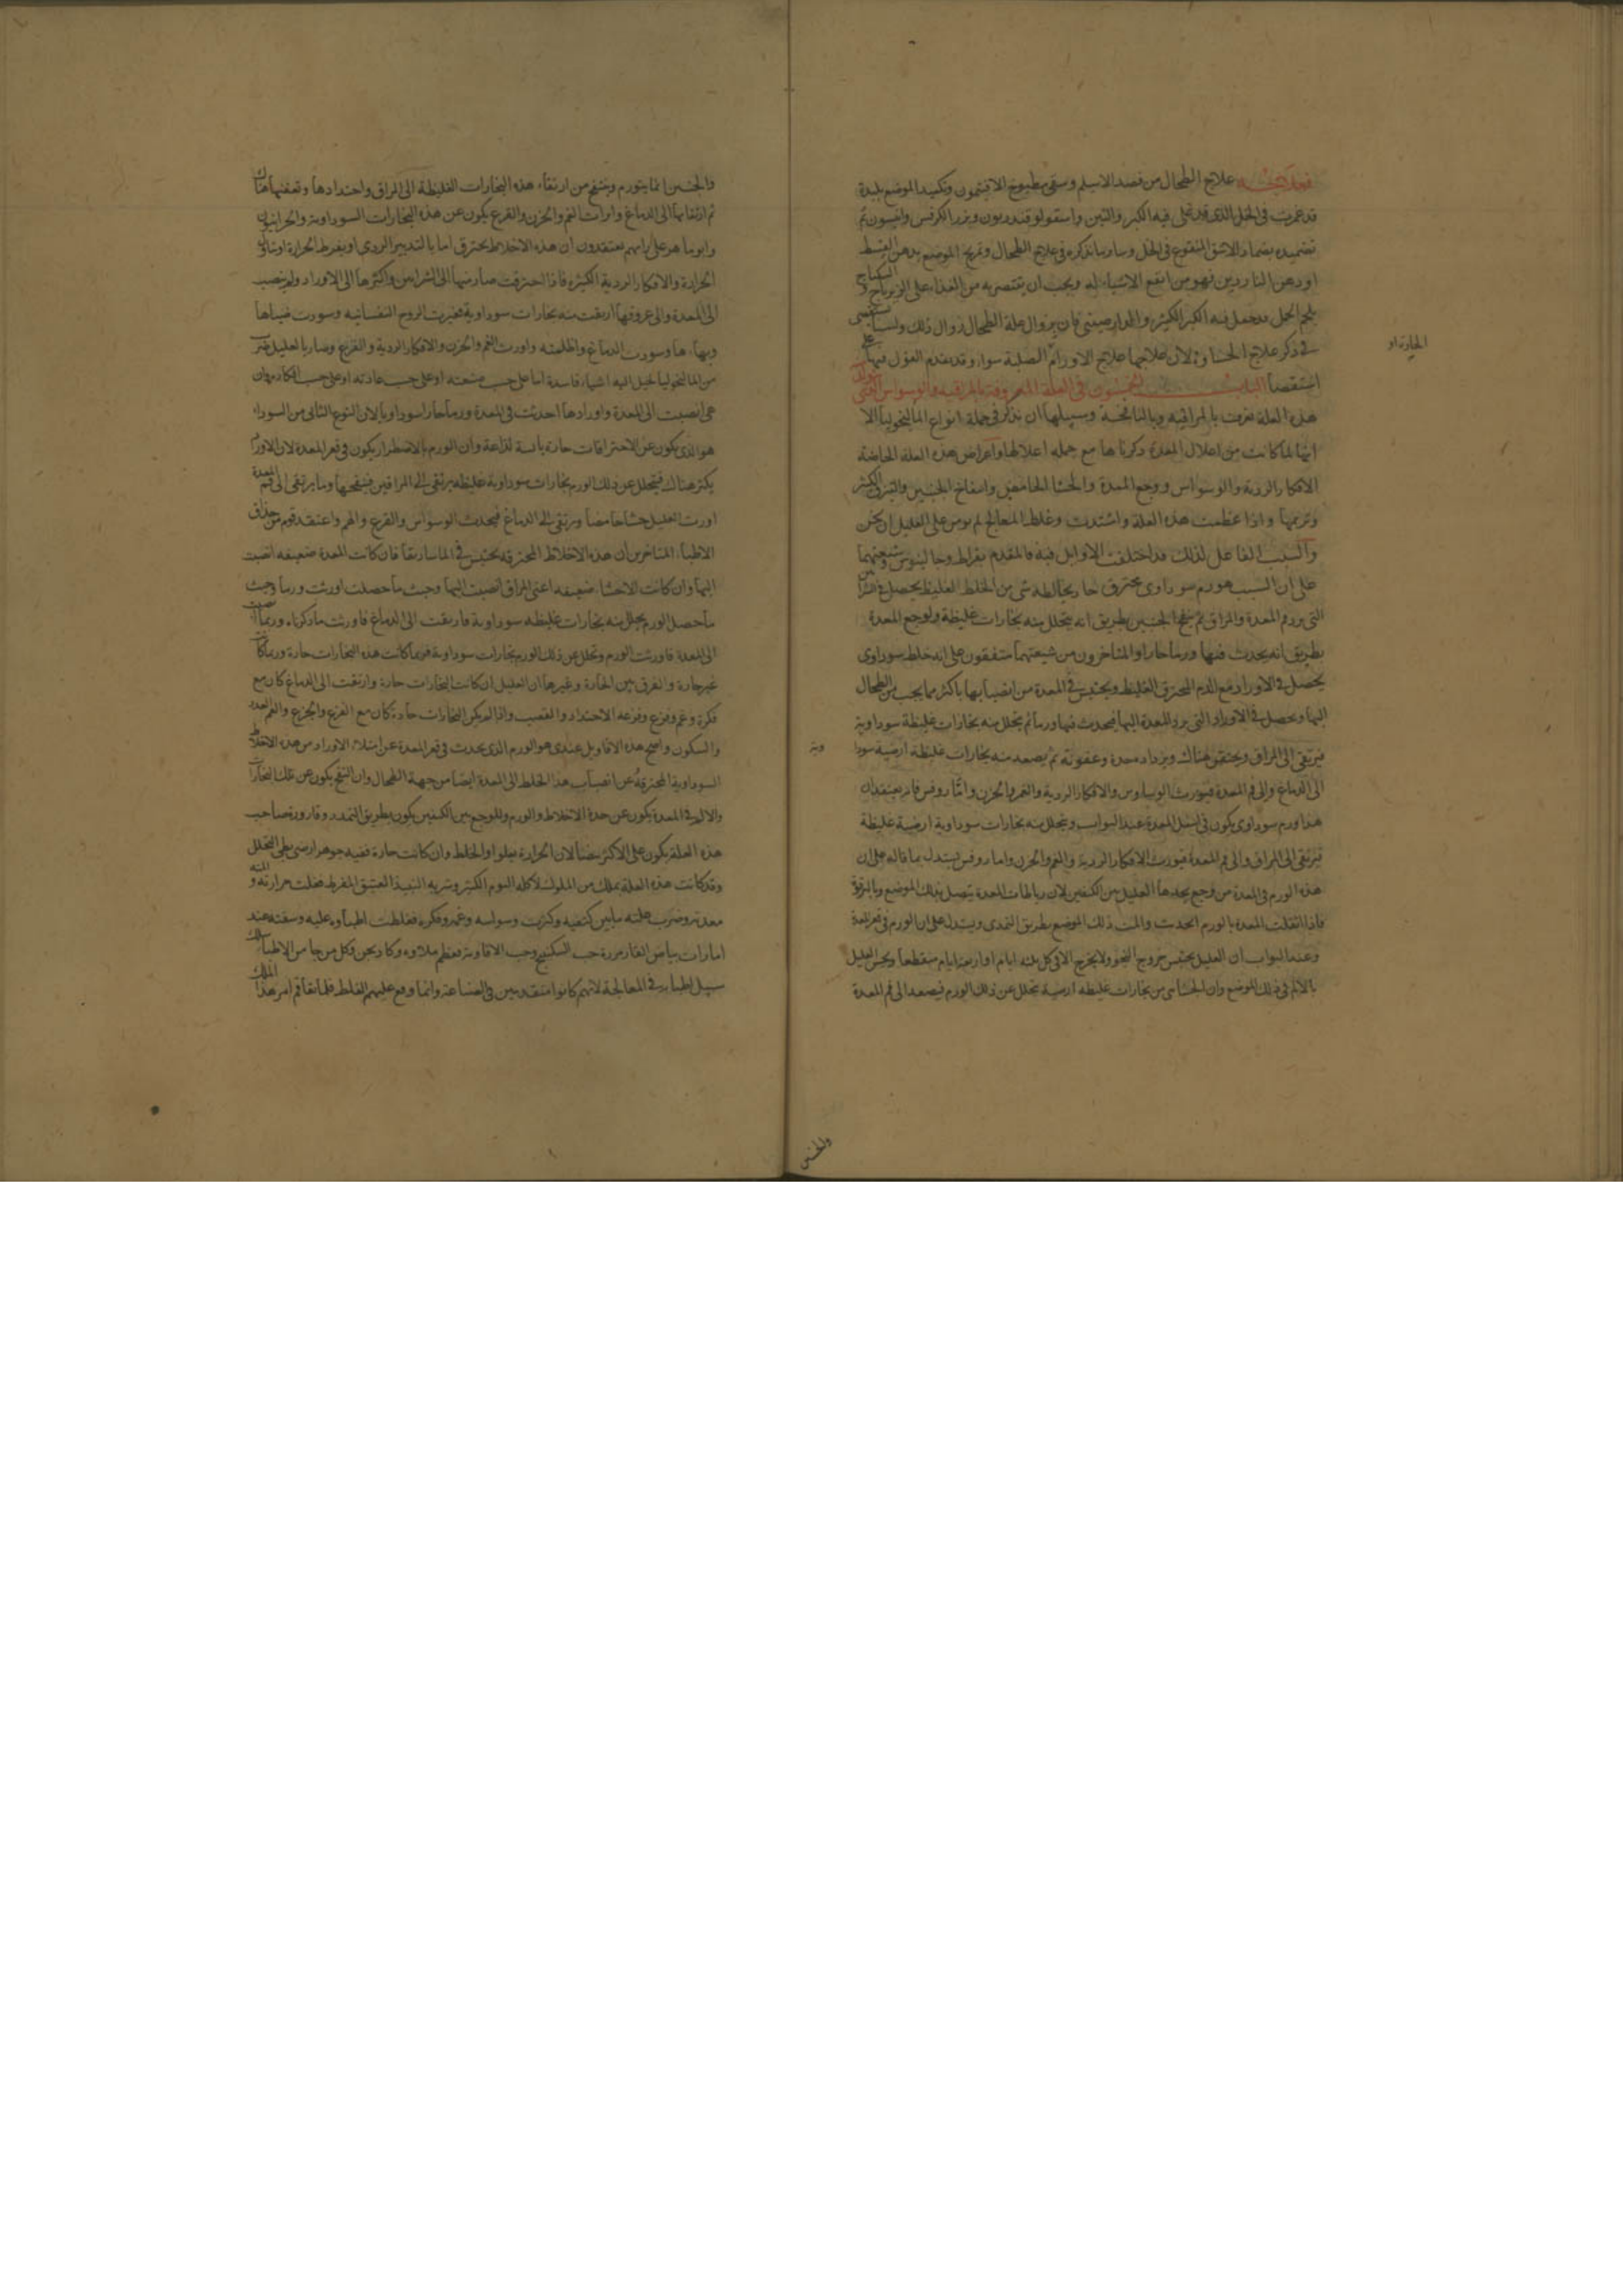 فعلاجه علاج الطحال من فصد الاسيلم وسقى مطبوخ الافتيمون وتكميد الموضع بلبدة
قد غمرت فى الخل الذى قد غلى فيه الكبر والتين واسقولوقندريون وبزر الكرفس وانيسون ثم
تضميده بضماد الاشق المنقوع فى الخل وساير ما نذكره فى علاج الطحال وتمريخ الموضع بدهن القسط
او دهن الناردين فهو من انفع الاشياء له ويجب ان يقتصر به من الغذاء على الزيرباج و السكباج
بلحم الحمل قد جعل فيه الكبر الكثير و فان بزوال علة الطحال زوال ذلك ولسنا نستقصى
فى ذكر علاج الحسا لان علاجها علاج الاورام الصلبة سواء وقد تقدم القول فيها على
استقصا الباب الخمسون فى العلة المعروفة بالمراقيه والوسواس
هذه العلة تعرف بالمراقيه وبالنافخة وسبيلها ان نذكر فى جملة انواع الماليخوليا الا
انها لما كانت من اعلال المعدة ذكرناها مع جمله اعلالها واعراض هذه العلة الخاصة
الافكار الردية والوسواس ووجع المعدة والجشا الحامض وانتفاخ الجنبين والتبزق الكثير
وتربيها واذا عظمت هذه العلة واشتدت وغلط المعالج لم يومن على العليل ان يجن
والسبب الفاعل لذلك قد اختلفت الاوايل فيه فالمقدم بقراط وجالينوس وشيعتهما
على ان السبب هو ورم سوداوى محترق حار يخالطه شى من الخلط الغليظ يحصل فى
التى ترد فم المعدة والمراق ثم ينفخ الجنبين بطريق انه يتحلل منه بخارات غليظة ويوجع المعدة
بطريق انه يحدث فيها ورما حارا والمتاخرون من شيعتهما متفقون على انه خلط سوداوى
يحصل فى الاوراد مع الدم المحترق الغليظ ويحتبس فى المعدة من انصبابها باكثر مما يجب من الطحال
اليها ويحصل فى الاوراد التى ترد المعدة اليها فيحدث فيها ورما ثم يتحلل منه بخارات غليظة سوداوية
فيرتقى الى المراق ويحتقن هناك ويزداد حدة وعفونة ثم يصعد منه بخارات غليظة ارضية سودا وية
الى الدماغ والى فم المعدة فيورث الوساوس والافكار الردية والغم والحزن واما روفس فانه يعتقد ان
هذا ورم سوداوى يكون فى اسفل المعدة عند البواب ويتحلل منه بخارات سوداوية ارضية غليظة
فيرتقى الى المراق والى فم المعدة فيورث الافكار الردية والغم والحزن واما روفس يستدل بما قاله على ان
هذه الورم فى المعدة من وجع يجدها العليل بين الكتفين لان رباطات المعدة يتصل بذلك الموضع
فاذا اثقلت المعدة بالورم انجذبت والمت ذلك الموضع بطريق التمدد ويستدل على ان الورم فى قعر المعدة
وعند البواب ان العليل يحتبس خروج النجو ولا يخرج الا فى كل ثلثه ايام او اربعة ايام منقطعا ويحس العليل
بالالم فى ذلك الموضع وان الجشا من بخارات غليظه ارضية تتحلل عن ذلك الورم فيصعد الى فم المعدة
الحارة او
والجنبين
والجنبين انما يتورم وينتفخ من ارتقاء هذه البخارات الغليظة الى المراق واحتدادها وتعفنها هناك
ثم ارتقايها الى الدماغ وايراث الغم والحزن والفزع يكون عن هذه البخارات السوداوية
وابوماهر على رايهم يعتقدون ان هذه الاخلاط يحترق اما بالتدبير الردى او بفرط الحرارة
الحرارة والافكار الردية الكثيرة فاذا احترقت صار منها الى الشرايين واكثرها الى الاوراد
الى المعدة والى عروقها ارتقت منه بخارات سوداوية فغيرت الروح النفسانيه وسودت ضياها
وبهاءها وسودت الدماغ واظلمته واورث الغم والحزن والافكار الردية والفزع وصار بالعليل
من الماليخوليا يخيل اليه اشياء فاسدة اما على حسب صنعته او على حسب عادته او على حسب افكاره وان
هى انصبت الى المعدة واورادها احدثت فى المعدة ورما حارا سوداويا لان النوع الثانى من السوداء
هو الذى يكون عن الاحتراقات حارة يابسة لذاعة وان الورم بالاضطرار يكون فى قعر المعدة لان الاوراد
يكثر هناك فيتحلل عن ذلك الورم بخارات سوداوية غليظه يرتقى الى المراقين فينفخها وما يرتقى الى فم المعدة
اورث العليل جشا حامضا ويرتقى الى الدماغ فيحدث الوسواس والفزع والهم واعتقد قوم من حذاق
الاطباء المتاخرين ان هذه الاخلاط المحترقه تحتبس فى الماساريقا فان كانت المعدة ضعيفه انصبت
اليها وان كانت الاحشا ضعيفه اعنى المراق انصبت اليها وحيث ما حصلت اورثت ورما وحيث
ما حصل الورم يتحلل منه بخارات غليظه سوداوية فارتقت الى الدماغ فاورثت ما ذكرناه وربما انصبت
الى المعدة فاورثت الورم وتحلل عن ذلك الورم بخارات سوداوية فربما كانت هذه البخارات حارة وربما كانت
غير حارة والفرق بين الحارة وغيرها ان العليل ان كانت البخارات حارة وارتقت الى الدماغ كان مع
فكره وغمه وفزعه الاحتداد والغضب واذا لم يكن البخارات حادة كان مع الفزع والجزع والغم الهدو
والسكون واصح هذه الاقاويل عندى هو الورم الذى يحدث فى قعر المعدة عن امتلاء الاوراد من هذه الاخلاط
السوداوية المحترقة عن انصباب هذا الخلط الى المعدة ايضا من جهة الطحال وان النفخ يكون عن تلك البخارات
والالم فى المعدة يكون عن حدة الاخلاط والورم والوجع بين الكتفين يكون بطريق التمدد وقارورة صاحب
هذه العلة يكون على الاكثر بيضا لان الحرارة يعلوا والخلط وان كانت حارة ففيه جوهر ارضى بطى التحلل
وقد كانت هذه العلة بملك من الملوك لاكله الثوم الكثير وشربه النبيذ العتيق المفرط فغلت مرارته و
معدته وضرب علته ما بين كتفيه وكثرت وسواسه وغمه وفكره فغلطت اطباوه عليه وسقته عند
امارات بياض القارورة حب السكبينج وحب الافاوية فعظم بلاوه وكاد يجن وكل من جا من الاطباء سلك
سبيل اطبايه فى المعالجة لانهم كانوا متقدمين فى الصناعة وانما وقع عليهم الغلط فلما تفاقم امر هذا الملك